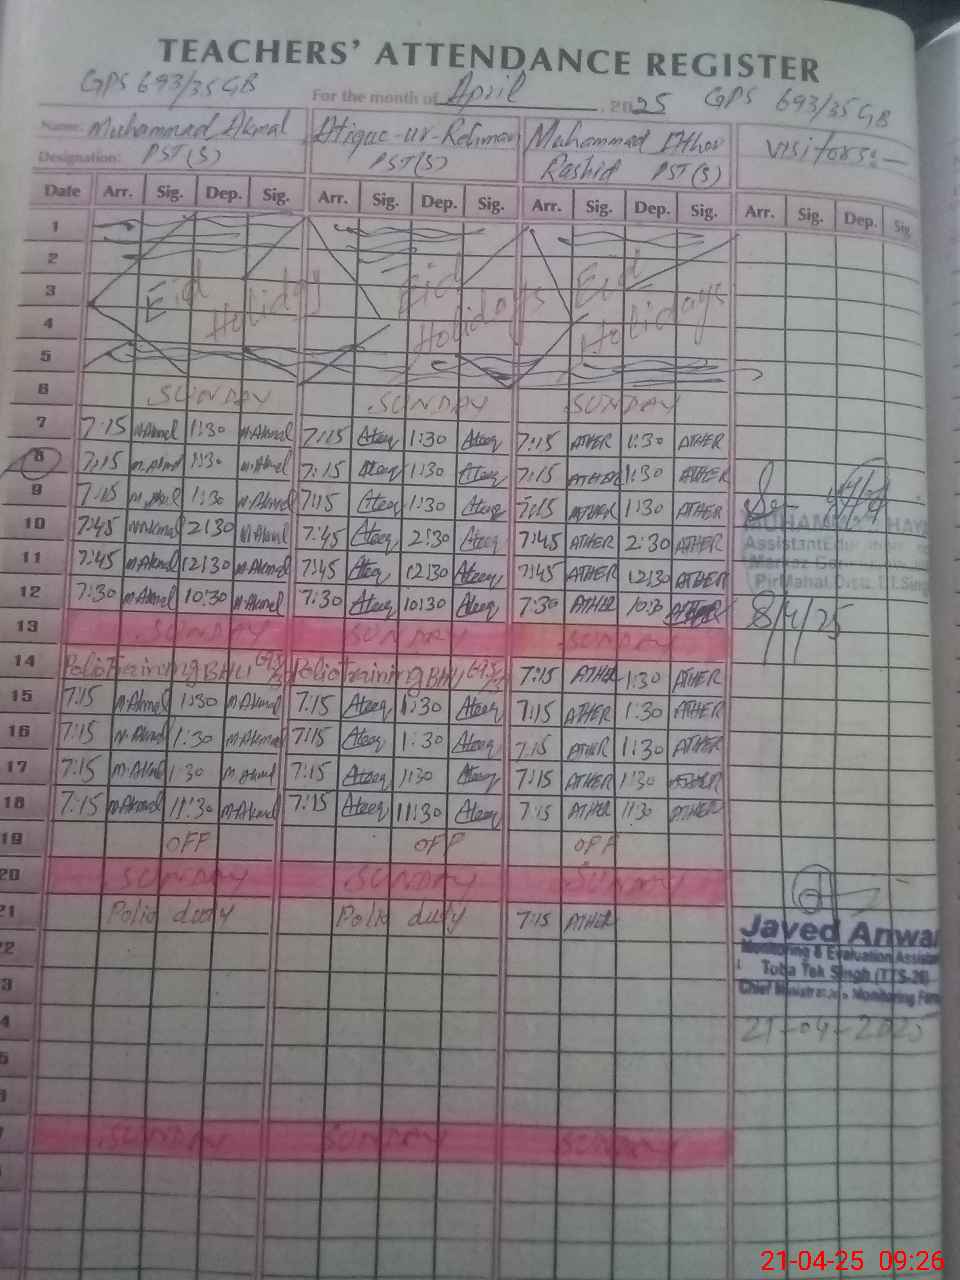 TEACHERS' ATTENDANCE REGISTER
GPS 693/35 GB For the month of April, 2025 GPS 693/35 GB
Name: Muhammad Akmal Atique-ur-Rehman Muhammad Ather Visitors:-
Designation: PST(S) PST(S) Rashid PST(S)
Date Arr. Sig. Dep. Sig. Arr. Sig. Dep. Sig. Arr. Sig. Dep. Sig. Arr. Sig. Dep. Sig.
1
2
3 Eid Eid Eid
4 Holidays Holidays Holidays
5
6 SUNDAY SUNDAY SUNDAY
7 7:15 M.Akmal 1:30 M.Akmal 7:15 Ateeq 1:30 Ateeq 7:15 ATHER 1:30 ATHER
8 7:15 M.Akmal 1:30 M.Akmal 7:15 Ateeq 1:30 Ateeq 7:15 ATHER 1:30 ATHER
9 7:15 M.Akmal 1:30 M.Akmal 7:15 Ateeq 1:30 Ateeq 7:15 ATHER 1:30 ATHER
10 7:45 M.Akmal 2:30 M.Akmal 7:45 Ateeq 2:30 Ateeq 7:45 ATHER 2:30 ATHER
11 7:45 M.Akmal 12:30 M.Akmal 7:45 Ateeq 12:30 Ateeq 7:45 ATHER 12:30 ATHER
12 7:30 M.Akmal 10:30 M.Akmal 7:30 Ateeq 10:30 Ateeq 7:30 ATHER 10:30 ATHER
MUHAMMAD
PirMahal, Distt. T.T.Singh
8/4/25
13 SUNDAY SUNDAY SUNDAY
14 Polio Training BHU 693 Polio Training BHU 693 7:15 ATHER 1:30 ATHER
15 7:15 M.Akmal 1:30 M.Akmal 7:15 Ateeq 1:30 Ateeq 7:15 ATHER 1:30 ATHER
16 7:15 M.Akmal 1:30 M.Akmal 7:15 Ateeq 1:30 Ateeq 7:15 ATHER 1:30 ATHER
17 7:15 M.Akmal 1:30 M.Akmal 7:15 Ateeq 1:30 Ateeq 7:15 ATHER 1:30 ATHER
18 7:15 M.Akmal 11:30 M.Akmal 7:15 Ateeq 11:30 Ateeq 7:15 ATHER 11:30 ATHER
19 OFF OFF OFF
20 SUNDAY SUNDAY SUNDAY
21 Polio duty Polio duty 7:15 ATHER
Javed Anwar
Monitoring & Evaluation Assistant
Toba Tek Singh (TTS-26)
Chief Minister's Monitoring Force
21-04-2025
SUNDAY SUNDAY SUNDAY
21-04-25 09:26